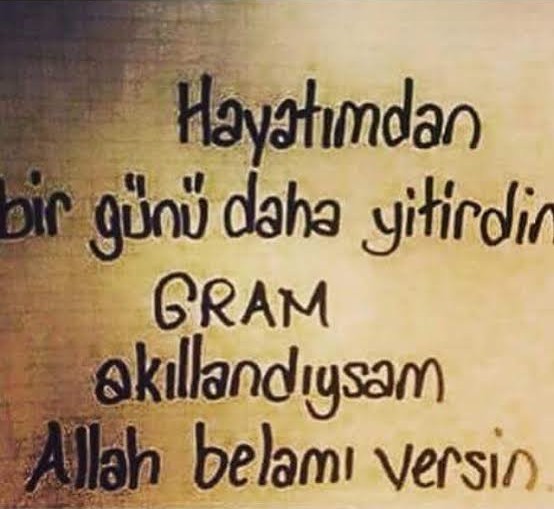 Hayatımdan
bir günü daha yitirdin
GRAM
akıllandıysam
Allah belamı versin